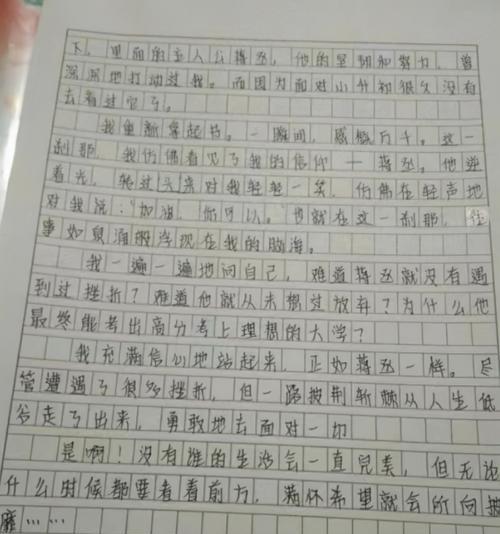 下。里面的主人公蒋丞，他的坚韧和努力，曾
深深地打动过我。而因为面对小升初很久没有
去看过它了。
我重新拿起书。一瞬间，感慨万千。这一
刹那，我仿佛看见了我的信仰——蒋丞。他逆
着光，转过头来对我轻轻一笑，仿佛在轻声地
对我说："加油，你可以。"也就在这一刹那，往
事如泉涌般浮现在我的脑海。
我一遍一遍地问自己，难道蒋丞就没有遇
到过挫折？难道他就从未想过放弃？为什么他
最终能考出高分考上理想的大学？
我充满信心地站起来，正如蒋丞一样。尽
管遭遇了很多挫折，但一路披荆斩棘从人生低
谷走了出来，勇敢地去面对一切
是啊！没有谁的生活会一直完美，但无论
什么时候都要看着前方，满怀希望就会所向披
靡……